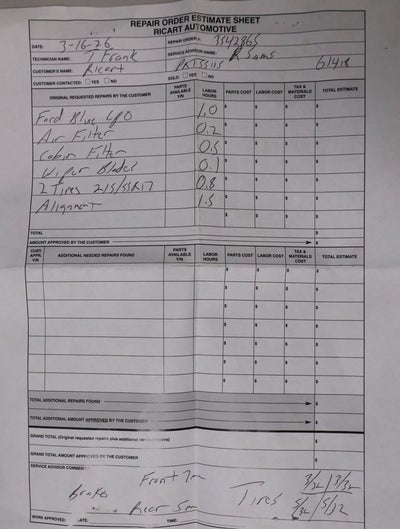 REPAIR ORDER ESTIMATE SHEET
RICART AUTOMOTIVE
DATE: 3-16-26 REPAIR ORDER #: 7542865
TECHNICIAN NAME: J Frank SERVICE ADVISOR NAME: R Sams
CUSTOMER'S NAME: Ricart
CUSTOMER CONTACTED: YES NO SOLD: YES NO
ORIGINAL REQUESTED REPAIRS BY THE CUSTOMER PARTS AVAILABLE Y/N LABOR HOURS PARTS COST LABOR COST TAX & MATERIALS COST TOTAL ESTIMATE
Ford Blue 1.0 $ $ $ $
Air Filter 0.2 $ $ $ $
Cabin Filter 0.5 $ $ $ $
Wiper Blades 0.1 $ $ $ $
2 Tires 215/55R17 0.8 $ $ $ $
Alignment 1.5 $ $ $ $
TOTAL $
AMOUNT APPROVED BY THE CUSTOMER $
CUST. APPR. Y/N ADDITIONAL NEEDED REPAIRS FOUND PARTS AVAILABLE Y/N LABOR HOURS PARTS COST LABOR COST TAX & MATERIALS COST TOTAL ESTIMATE
$ $ $ $
$ $ $ $
$ $ $ $
$ $ $ $
$ $ $ $
$ $ $ $
$ $ $ $
TOTAL ADDITIONAL REPAIRS FOUND $
TOTAL ADDITIONAL AMOUNT APPROVED BY THE CUSTOMER $
GRAND TOTAL (Original requested repairs plus additional needed repairs) $
GRAND TOTAL AMOUNT APPROVED BY THE CUSTOMER $
SERVICE ADVISOR COMMENTS
Front 7mm 7/32 | 7/32
Brakes Tires
Rear 5mm 5/32 | 5/32
WORK APPROVED: DATE: TIME: